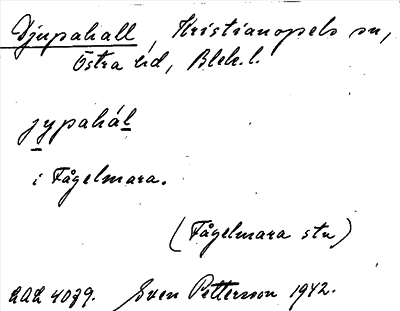 Djupahall, Kristianopels sn,
Östra hd, Blek.l.
jypahál
i Fågelmara.
(Fågelmara stn)
LAL 4079. Sven Pettersson 1942.